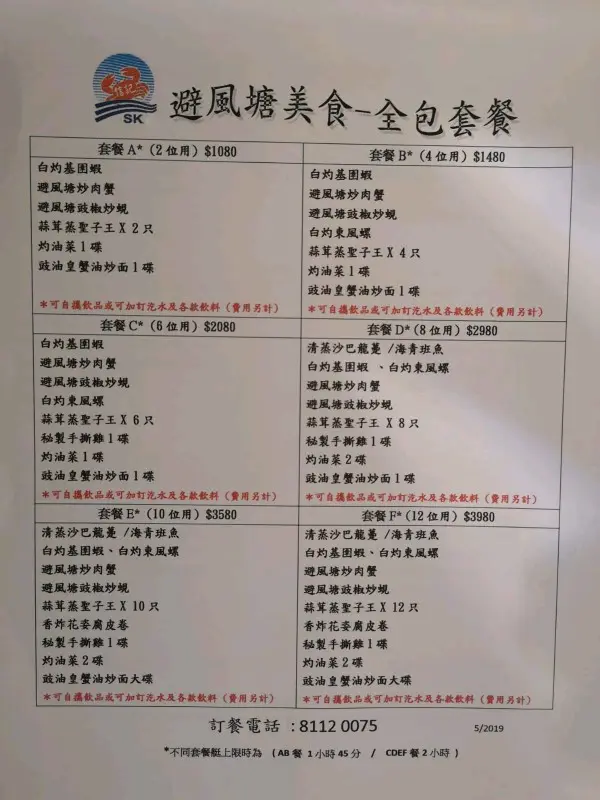 SK
避風塘美食-全包套餐
套餐 A*（2 位用）$1080
白灼基囯蝦
避風塘炒肉蟹
避風塘豉椒炒蜆
蒜茸蒸聖子王 X 2 只
灼油菜 1 碟
豉油皇蟹油炒面 1 碟
*可自攜飲品或可加訂汽水及各款飲料（費用另計）
套餐 B*（4 位用）$1480
白灼基囯蝦
避風塘炒肉蟹
避風塘豉椒炒蜆
白灼東風螺
蒜茸蒸聖子王 X 4 只
灼油菜 1 碟
豉油皇蟹油炒面 1 碟
*可自攜飲品或可加訂汽水及各款飲料（費用另計）
套餐 C*（6 位用）$2080
白灼基囯蝦
避風塘炒肉蟹
避風塘豉椒炒蜆
白灼東風螺
蒜茸蒸聖子王 X 6 只
秘製手撕雞 1 碟
灼油菜 1 碟
豉油皇蟹油炒面 1 碟
*可自攜飲品或可加訂汽水及各款飲料（費用另計）
套餐 D*（8 位用）$2980
清蒸沙巴龍躉 /海青班魚
白灼基囯蝦 、白灼東風螺
避風塘炒肉蟹
避風塘豉椒炒蜆
蒜茸蒸聖子王 X 8 只
秘製手撕雞 1 碟
灼油菜 2 碟
豉油皇蟹油炒面 1 碟
*可自攜飲品或可加訂汽水及各款飲料（費用另計）
套餐 E*（10 位用）$3580
清蒸沙巴龍躉 /海青班魚
白灼基囯蝦、白灼東風螺
避風塘炒肉蟹
避風塘豉椒炒蜆
蒜茸蒸聖子王 X 10 只
香炸花姿腐皮卷
秘製手撕雞 1 碟
灼油菜 2 碟
豉油皇蟹油炒面大碟
*可自攜飲品或可加訂汽水及各款飲料（費用另計）
套餐 F*（12 位用）$3980
清蒸沙巴龍躉 /海青班魚
白灼基囯蝦、白灼東風螺
避風塘炒肉蟹
避風塘豉椒炒蜆
蒜茸蒸聖子王 X 12 只
香炸花姿腐皮卷
秘製手撕雞 1 碟
灼油菜 2 碟
豉油皇蟹油炒面大碟
*可自攜飲品或可加訂汽水及各款飲料（費用另計）
訂餐電話 : 8112 0075
5/2019
*不同套餐艇上限時為 （AB 餐 1 小時 45 分 / CDEF 餐 2 小時 ）